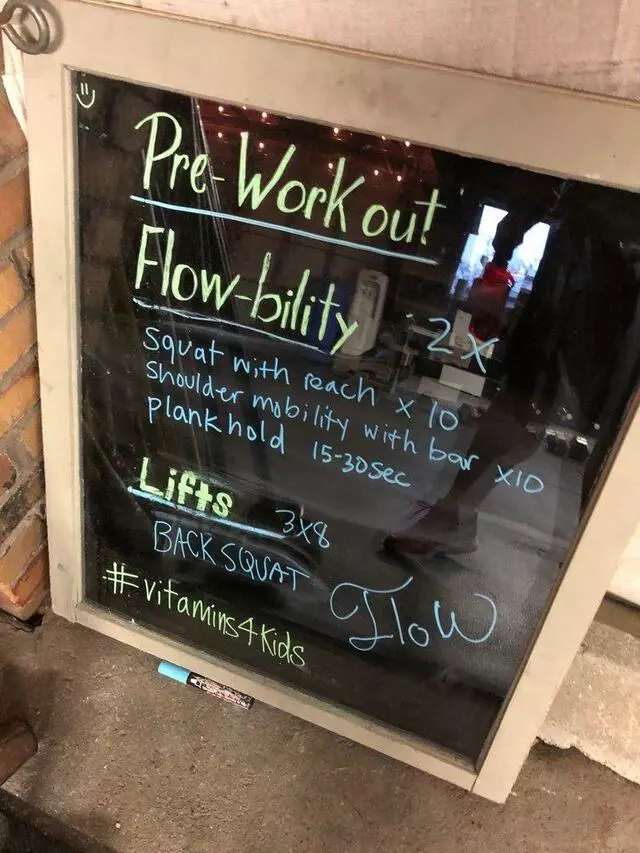 Pre-Workout
Flow-bility 2x
Squat with reach x 10
Shoulder mobility with bar x10
plank hold 15-30sec
Lifts 3x8
BACK SQUAT
Flow
#vitamins4kids